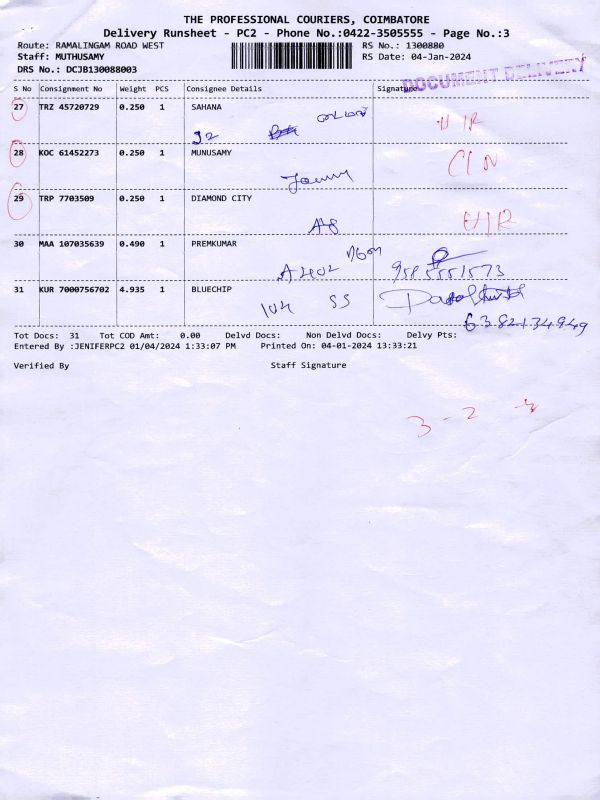 THE PROFESSIONAL COURIERS, COIMBATORE
Delivery Runsheet - PC2 - Phone No.:0422-3505555 - Page No.:3
Route: RAMALINGAM ROAD WEST RS No.: 1300880
Staff: MUTHUSAMY RS Date: 04-Jan-2024
DRS No.: DCJB130088003
DOCUMENT DELIVERY
S No Consignment No Weight PCS Consignee Details Signature
27 TRZ 45720729 0.250 1 SAHANA
28 KOC 61452273 0.250 1 MUNUSAMY
29 TRP 7703509 0.250 1 DIAMOND CITY
30 MAA 107035639 0.490 1 PREMKUMAR
A402
31 KUR 7000756702 4.935 1 BLUECHIP
104 SS
6382134949
Tot Docs: 31 Tot COD Amt: 0.00 Delvd Docs: Non Delvd Docs: Delvy Pts:
Entered By :JENIFERPC2 01/04/2024 1:33:07 PM Printed On: 04-01-2024 13:33:21
Verified By Staff Signature